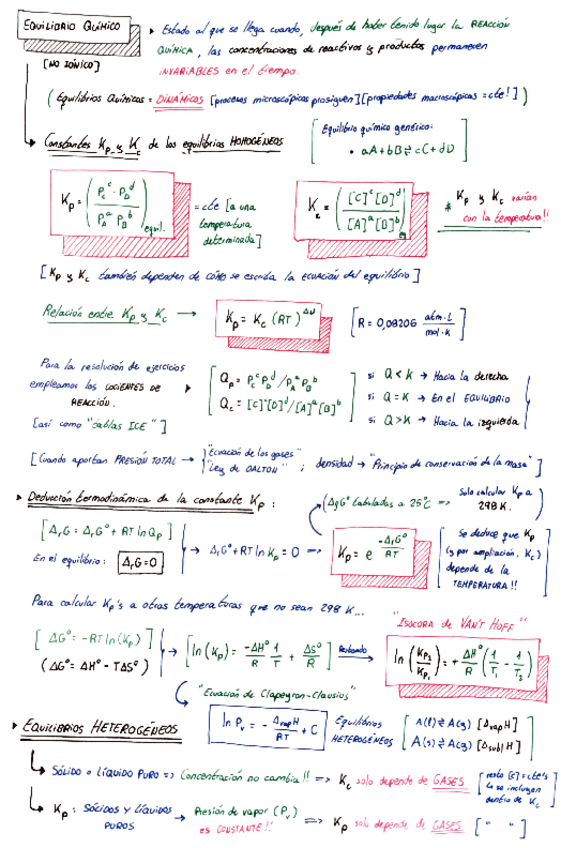 EQUILIBRIO QUÍMICO
[NO IÓNICO]
▸ Estado al que se llega cuando, después de haber tenido lugar la REACCIÓN
QUÍMICA, las concentraciones de reactivos y productos permanecen
INVARIABLES en el tiempo.
( Equilibrios Químicos = DINÁMICOS [procesos microscópicos prosiguen] [propiedades macroscópicas = cte!] )
Constantes Kp y Kc de los equilibrios HOMOGÉNEOS
Equilibrio químico genérico:
• aA + bB ⇌ cC + dD
Kp = (Pc^c · PD^d / PA^a PB^b)equil. = cte [a una
temperatura
determinada]
Kc = ([C]^c [D]^d / [A]^a [B]^b)eq
* Kp y Kc varían
con la temperatura!!
[Kp y Kc también dependen de CÓMO se escriba la ECUACIÓN del equilibrio]
Relación entre Kp y Kc → Kp = Kc (RT)^Δν [R = 0,08206 atm·L / mol·K]
Para la resolución de ejercicios
empleamos los COCIENTES DE
REACCIÓN.
[así como "tablas ICE"]
Qp = Pc^c PD^d / PA^a PB^b
Qc = [C]^c [D]^d / [A]^a [B]^b
si Q < K → Hacia la derecha
si Q = K → En el EQUILIBRIO
si Q > K → Hacia la izquierda
[Cuando aportan PRESIÓN TOTAL → "Ecuación de los gases"
"Ley de DALTON" ; densidad → "Principio de conservación de la masa"]
▸ Deducción termodinámica de la constante Kp :
(ΔfG° tabuladas a 25°C => Solo calcular Kp a
298 K.
[ΔrG = ΔrG° + RT ln Qp]
En el equilibrio: ΔrG = 0
→ ΔrG° + RT ln Kp = 0 => Kp = e^(-ΔrG°/RT)
Se deduce que Kp
(y por ampliación, Kc)
depende de la
TEMPERATURA!!
Para calcular Kp's a otras temperaturas que no sean 298 K...
"ISOCORA DE VAN'T HOFF"
[ΔG° = -RT ln(Kp)]
(ΔG° = ΔH° - TΔS°)
→ [ln(Kp) = -ΔH°/R 1/T + ΔS°/R] Restando → ln(Kp2/Kp1) = + ΔH°/R (1/T1 - 1/T2)
"Ecuación de Clapeyron-Clausius"
ln Pv = - ΔvapH/RT + C
Equilibrios
HETEROGÉNEOS
A(l) ⇌ A(g) [ΔvapH]
A(s) ⇌ A(g) [ΔsublH]
▸ EQUILIBRIOS HETEROGÉNEOS
SÓLIDO o LÍQUIDO PURO => Concentración no cambia!! => Kc solo depende de GASES
[resto [c] = cte's
se incluyen
dentro de Kc]
Kp : SÓLIDOS y LÍQUIDOS
PUROS
→ Presión de vapor (Pv)
es CONSTANTE!!
=> Kp solo depende de GASES [ " " ]